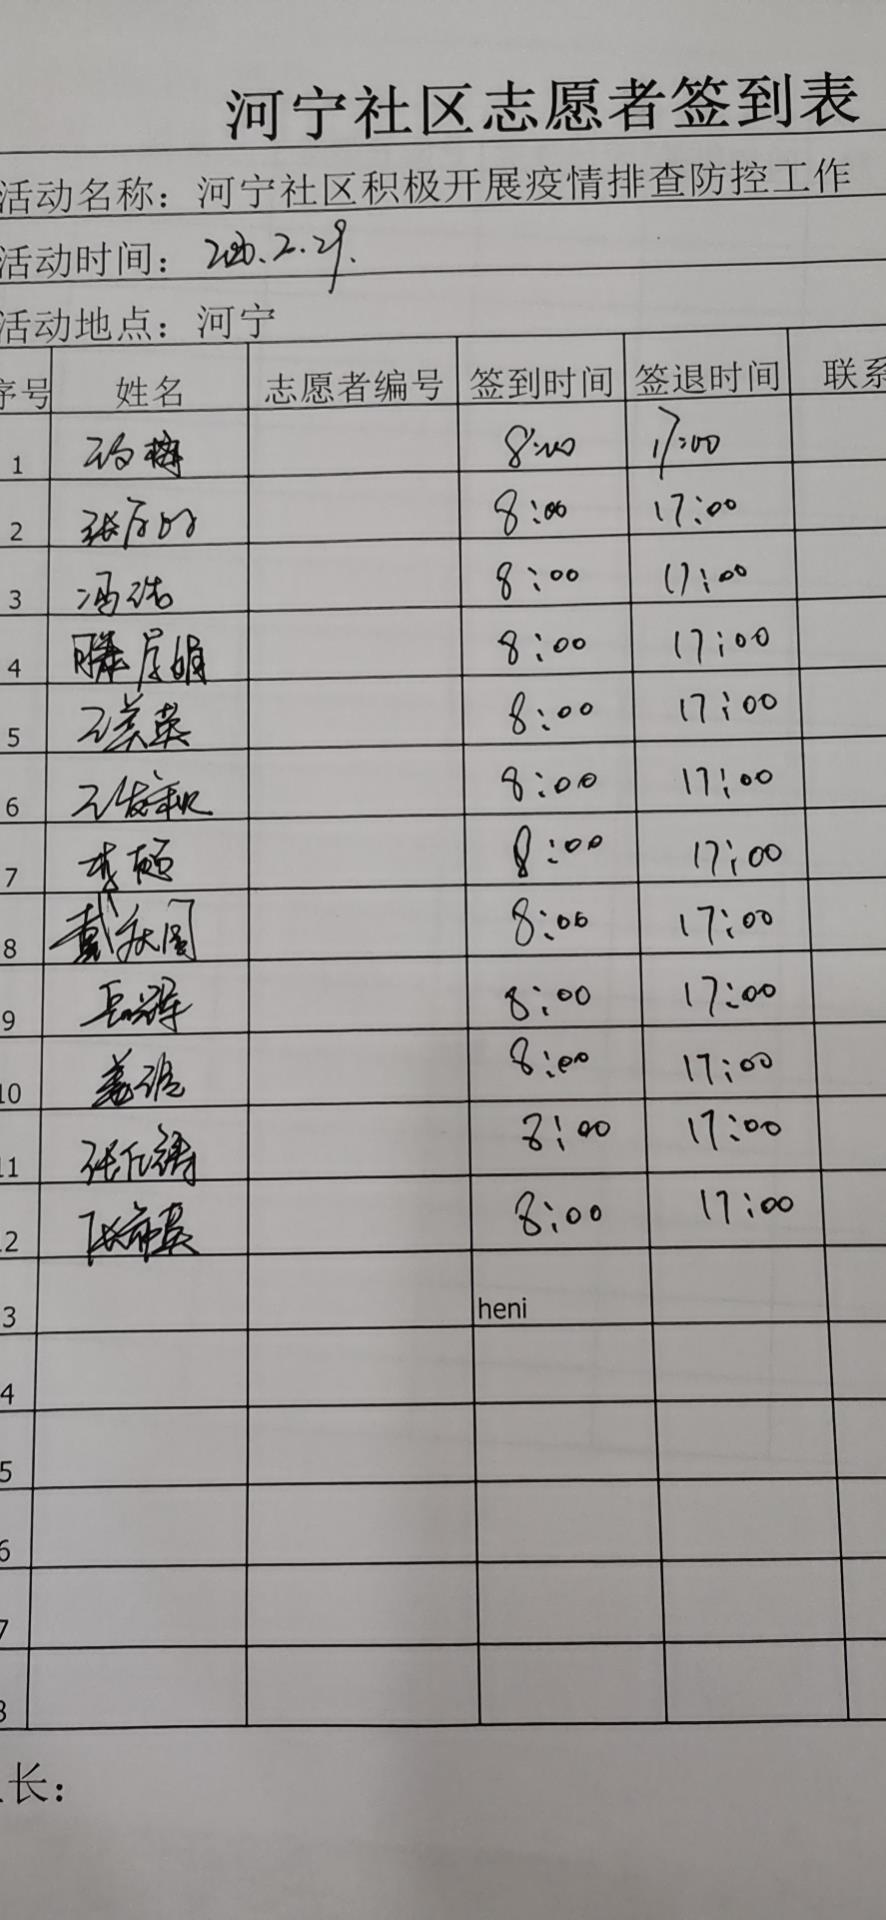 河宁社区志愿者签到表
活动名称：河宁社区积极开展疫情排查防控工作
活动时间：2020.2.29.
活动地点：河宁
序号 姓名 志愿者编号 签到时间 签退时间 联系
1 8:00 17:00
2 8:00 17:00
3 冯浩 8:00 17:00
4 8:00 17:00
5 王美英 8:00 17:00
6 8:00 17:00
7 李硕 8:00 17:00
8 8:00 17:00
9 8:00 17:00
10 8:00 17:00
11 8:00 17:00
12 8:00 17:00
3 heni
4
5
6
7
8
长：